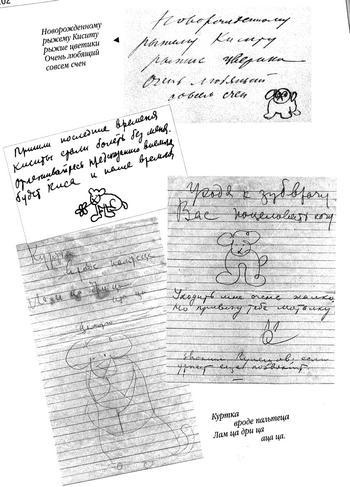 02
Новорожденному
рыжему Киситу
рыжие цветики
Очень любящий
совсем счен
Новорожденному
рыжему Киситу
рыжие цветики
Очень любящий
совсем счен
Пришли последние времена
Киситы стали болеть без меня.
будет Кися и наше времячко
Уходя к зубврачу
Вас поцеловать хочу
Уходить мне очень жалко
Но привезу тебе
Куртка
вроде пальтеца
Лам ца дри ца
ца ца
Куртка
вроде пальтеца
Лам ца дри ца
аца ца.